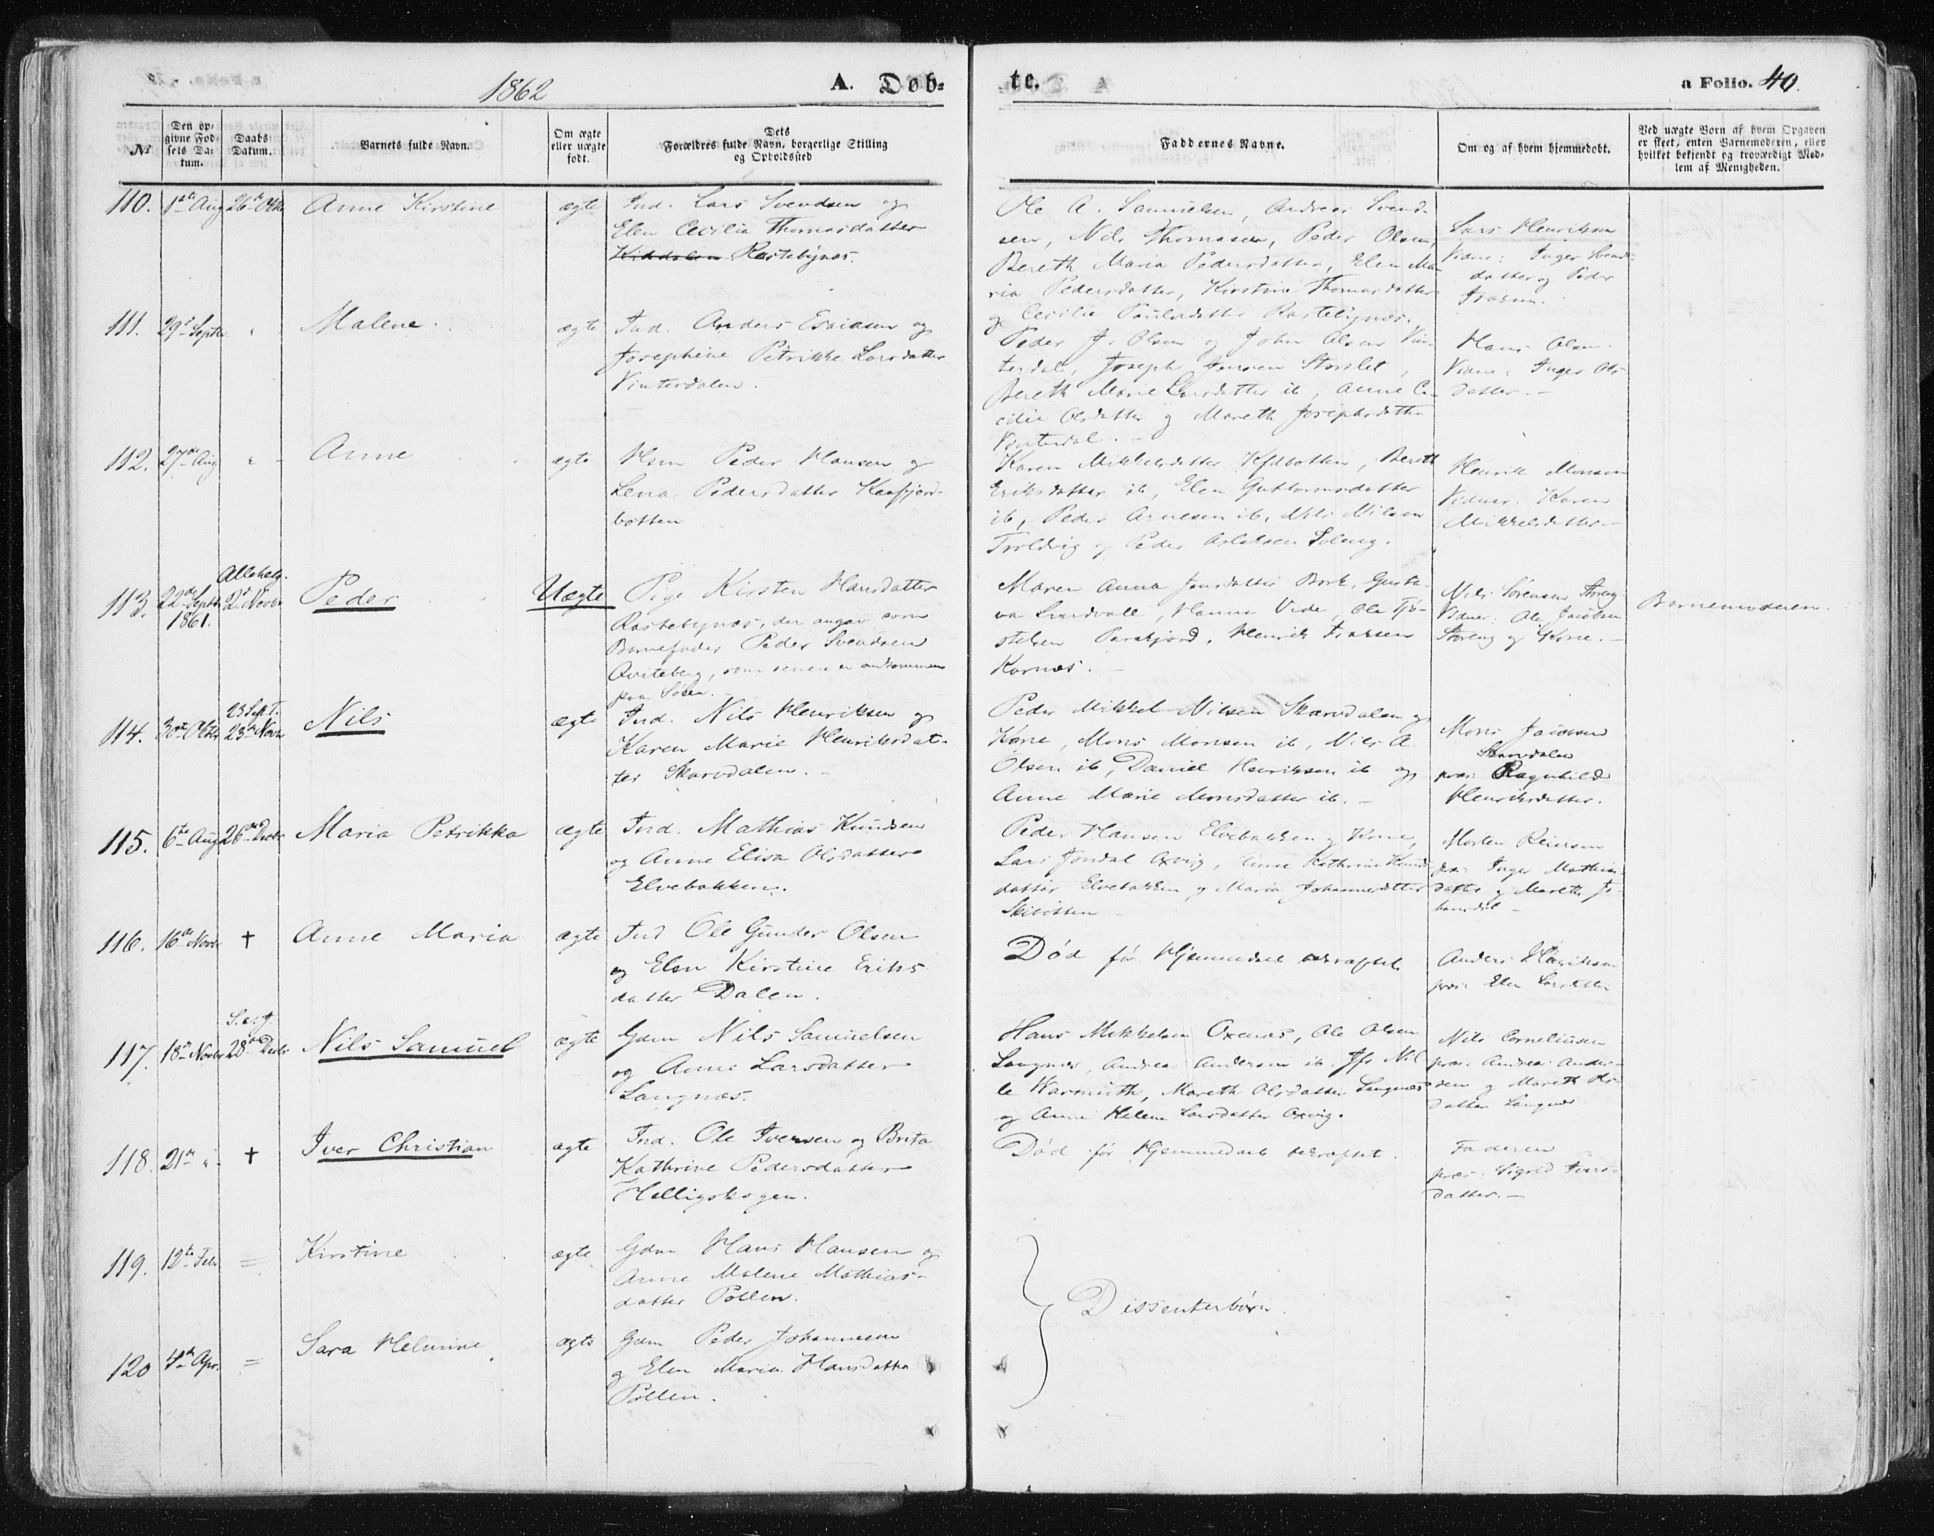 1862 A. Døb- te. a Folio. 40.
№
Den op-
givne Fød-
sels Da-
tum.
Daabs
Datum.
Barnets fulde Navn.
Om ægte
eller uægte
født.
Dets
Forældres fulde Navn, borgerlige Stilling
og Opholdssted
Faddernes Navne.
Om og af hvem hjemmedøbt.
Ved uægte Børn af hvem Opgaven
er skeet, enten Barnemoderen, eller
hvilket bekjendt og troværdigt Med-
lem af Menigheden.
110. 1ste Aug 26de Oktr Anne Kirstine ægte Ind. Lars Svendsen og
Elen Cecilia Thomasdatter
Rastebynæs.
Ole A. Samuelsen, Andreas Svend-
sen, Nils Thomasen, Peder Olsen,
Bereth Maria Pedersdatter, Elen Ma-
ria Pedersdatter, Kirstine Thomasdatter
og Cecilie Paulsdatter Rastebynæs.
Lars Henriksen
Vidne: Inger Svends-
datter og Peder
Isaksen.
111. 29de Septbr " Malene ægte Ind. Anders Esaiasen og
Josephine Petrikke Larsdatter
Vinterdalen.
Peder J. Olsen og John Olsen Vin-
terdal, Joseph Jensen Storslet,
Bereth Marie Larsdatter ib, Anne Ce-
cilie Olsdatter og Mareth Josephsdatter
Vinterdal.
Hans Olsen.
Vidne: Inger Ols-
datter.
112. 27de Aug " Anne ægte Peder Hansen og
Lena Pedersdatter Kaafjord-
botten
Karen Mikkelsdatter Kfdbotten, Bereth
Eriksdatter ib, Elen Guttormsdatter
ib, Peder Arnesen ib, Nils Nilsen
Troldvig og Peder Aslaksen Soleng.
Henrik Monsen
Vidner: Karen
Mikkelsdatter.
113. 22de Septbr
1861.
Allehelg.
2d Novbr
Peder Uægte Pige Kirsten Hansdatter
Rastebynæs, der angav som
Barnefader Peder Svendsen
Qviteberg, som senere er omkommen
paa Søen.
Maren Anna Jensdatter Bork, Gusta-
va Lundvall, Hanna Vide, Ole Tjø-
stelsen Parasfjord, Henrik Isaksen
Karnæs.
Nils Sørensen Storeng
Vidner: Ole Jacobsen
Storeng og Kone.
Barnemoderen.
114. 30te Oktbr
23 Sept.
23de Novbr
Nils ægte Ind. Nils Henriksen og
Karen Marie Henriksdat-
ter Skarvdalen.
Peder Mikkel Nilsen Skarvdalen og
Kone, Mons Monsen ib, Nils A.
Olsen ib, Daniel Henriksen ib og
Anne Marie Monsdatter ib.
Mons Jacobsen
Skarvdalen
præs: Ragnhild
Henriksdatter.
115. 6te Aug 26de Decbr Maria Petrikka ægte Ind. Mathias Knudsen
og Anne Elisa Olsdatter
Elvebakken.
Peder Hansen Elvebakken og Kone,
Lars Jondal Oxvig, Anne Kathrine Knuds-
datter Elvebakken og Maria Johannesdatter
Skibotten
Morten Reiersen
præs: Inger Mathias-
datter og Mareth Jo-
hansdat
116. 16de Novbr † Anne Maria ægte Ind Ole Gunder Olsen
og Elen Kirstine Eriks-
datter Dalen.
Død før Hjemmedaab bekræftet
Anders Henriksen
præs: Elen Larsdatter
117. 18de Novbr
S.e.J.
28de Decbr
Nils Samuel ægte Gdm Nils Samuelsen
og Anne Larsdatter
Langnæs.
Hans Mikkelsen Oxenæs, Ole Olsen
Langnæs, Andrea Andersen ib. Jfr. Nil-
le Warmuth, Mareth Olsdatter Langnæs
og Anne Helene Larsdatter Oxvig.
Nils Corneliusen
præs: Andrea Ander-
sen og Mareth Ols-
datter Langnæs
118. 21de " † Iver Christian ægte Ind. Ole Iversen og Brita
Kathrine Pedersdatter
Helligskogen.
Død før Hjemmedaab bekræftet.
Faderen
præs: Sigrid Ivers-
datter.
119. 12te Febr = Kirstine ægte Gdm Hans Hansen og
Anne Malene Mathias-
datter Pollen.
Dissenterbørn.
120 4de Apr. = Sara Helmine ægte Gdm Peder Johannesen
og Elen Maria Hansdatter
Pollen.